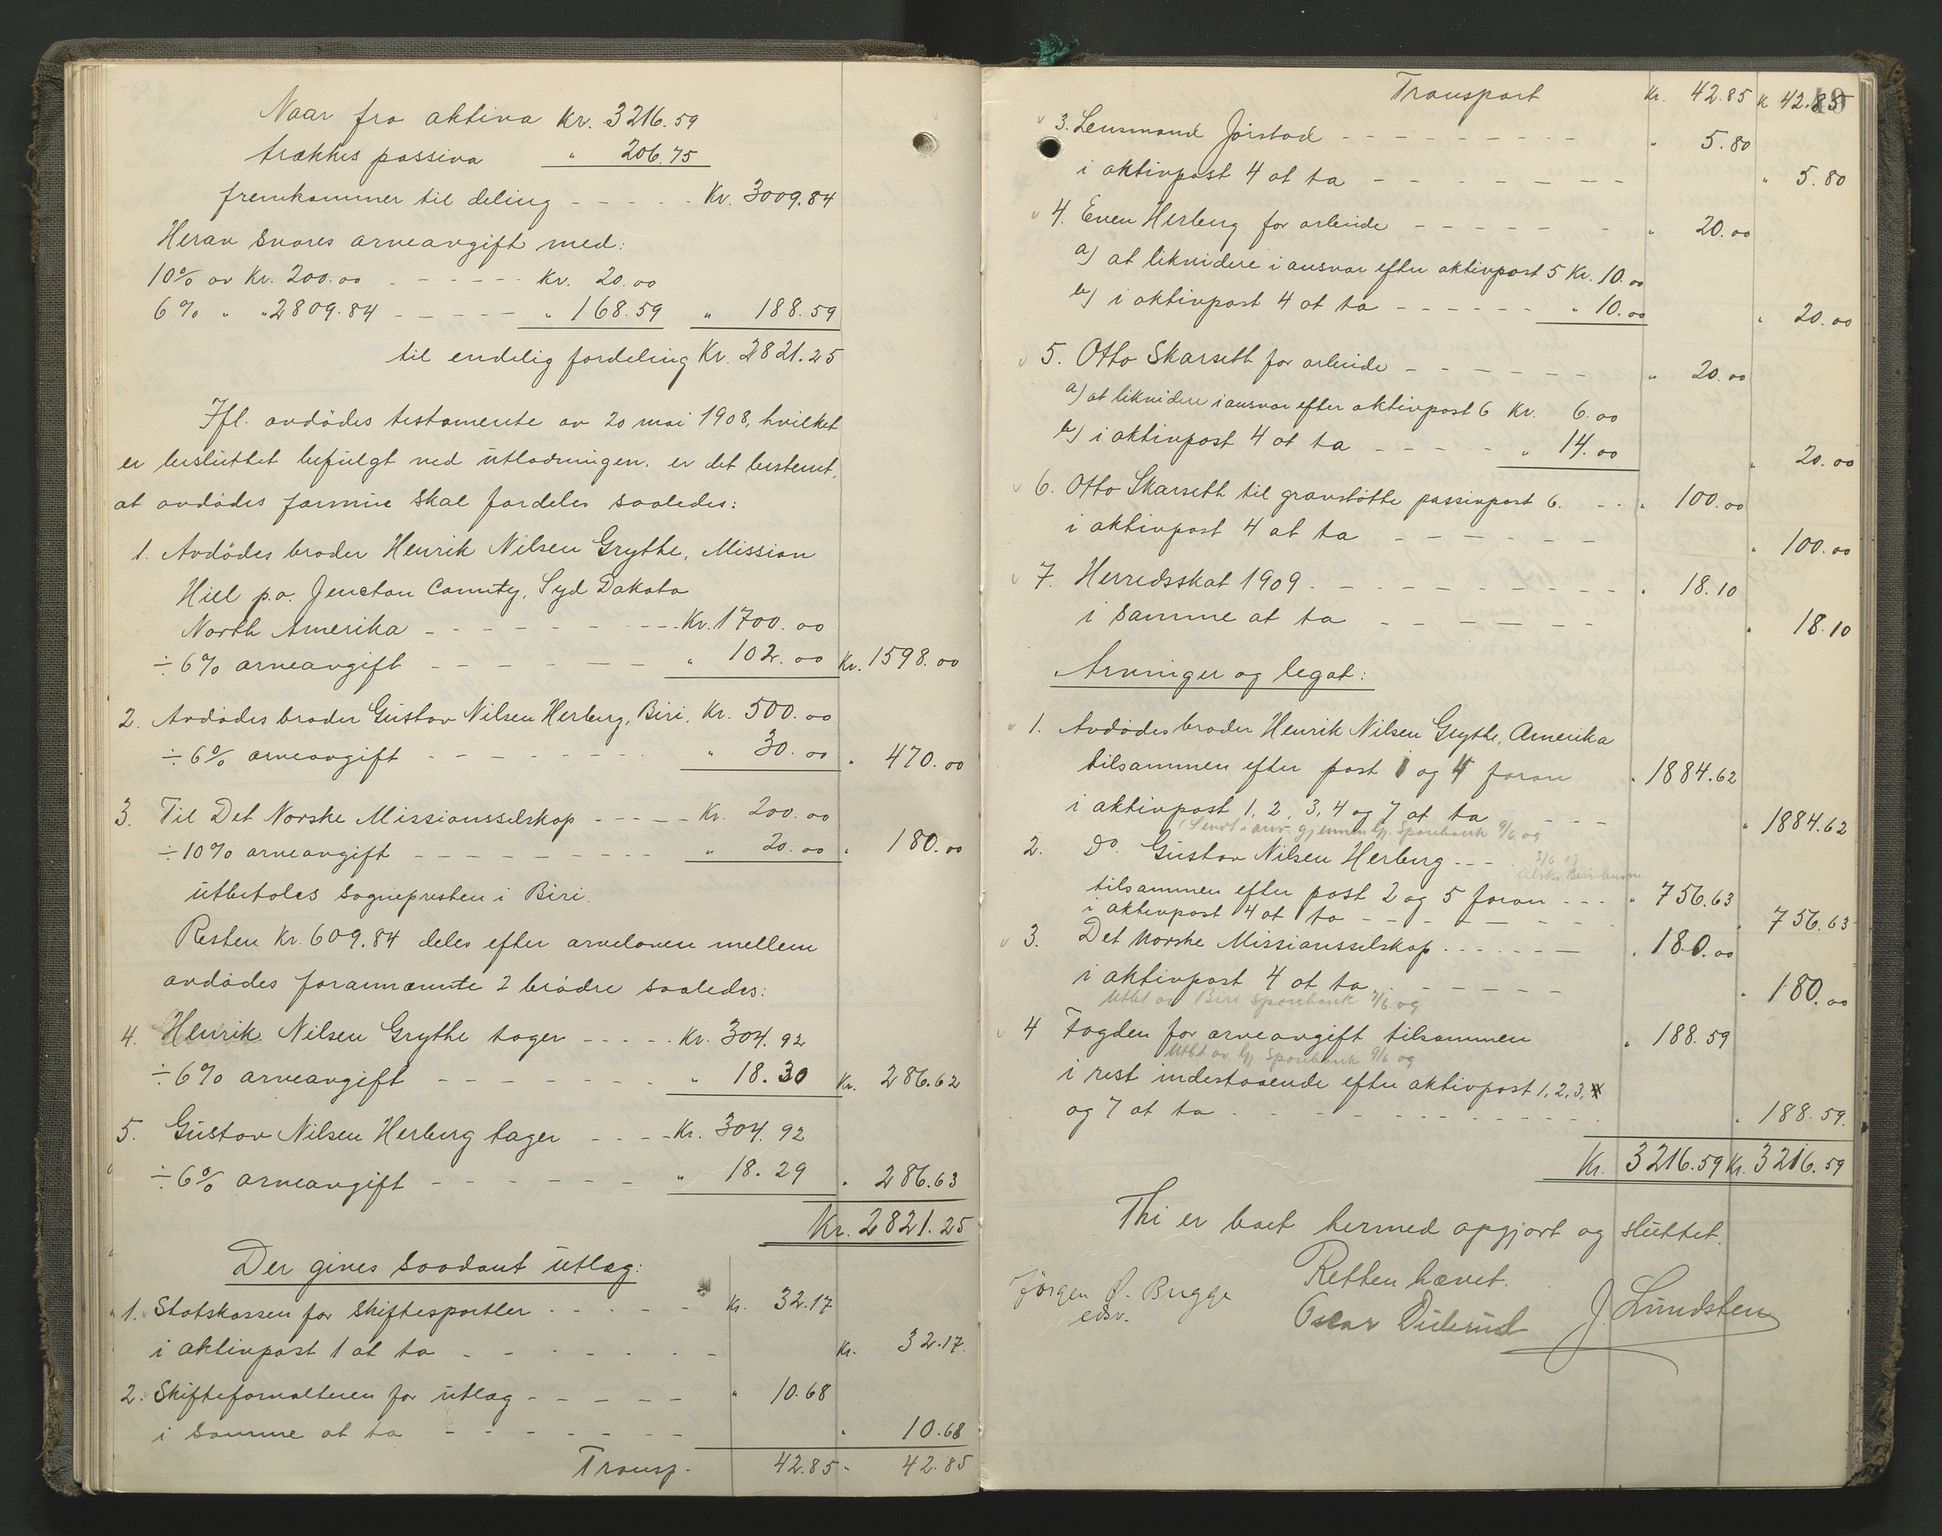 Naar fra aktiva Kr. 3216.59
trækkes passiva " 206.75
fremkommer til deling - - - - - Kr. 3009.84
Herav svares arveavgift med:
10% av Kr. 200.00 - - - - - Kr. 20.00
6% " " 2809.84 - - - - - " 168.59 " 188.59
til endelig fordeling Kr. 2821.25
Ifl. avdødes testamente av 20 mai 1908, hvilket
er besluttet befulgt ved utlodningen, er det bestemt,
at avdødes formue skal fordeles saaledes:
1. Avdødes broder Henrik Nilsen Grythe, Mission
Hill p.o. Jencton County, Syd Dakota
North Amerika - - - - - - - Kr. 1700.00
÷ 6% arveavgift - - - - - - " 102.00 Kr. 1598.00
2. Avdødes broder Gustav Nilsen Herberg, Biri, Kr. 500.00
÷ 6% arveavgift - - - - - - " 30.00 " 470.00
3. Til Det Norske Missionsselskap - - - - - Kr. 200.00
÷ 10% arveavgift - - - - - - - - " 20.00 " 180.00
utbetales sognepresten i Biri.
Resten Kr. 609.84 deles efter arveloven mellem
avdødes forannævnte 2 brødre saaledes:
4. Henrik Nilsen Grythe tager - - - - - Kr. 304.92
÷ 6% arveavgift - - - - - - - " 18.30 Kr. 286.62
5. Gustav Nilsen Herberg tager - - - - Kr. 304.92
÷ 6% arveavgift - - - - - - " 18.29 " 286.63
Kr. 2821.25
Der gives saadant utlæg:
1. Statskassen for skiftesportler - - - - - Kr. 32.17
i aktivpost 1 at ta - - - - - - - Kr. 32.17.
2. Skifteforvalteren for utlæg - - - - - " 10.68
i samme at ta - - - - - - - " 10.68
Transp. 42.85 " 42.85
Transport Kr. 42.85 K 42.85
3. Lensmand Jørstad - - - - - - - - - " 5.80
i aktivpost 4 at ta - - - - - - - - " 5.80
4. Even Herberg for arbeide - - - - - - - " 20.00
a) at likvidere i ansvar efter aktivpost 5 Kr. 10.00
b) i aktivpost 4 at ta - - - - - - " 10.00 " 20.00
5. Otto Skarseth for arbeide - - - - - - " 20.00
a) at likvidere i ansvar efter aktivpost 6 Kr. 6.00
b) i aktivpost 4 at ta - - - - - " 14.00 " 20.00
6. Otto Skarseth til gravstøtte passivpost 6. - - " 100.00
i aktivpost 4 at ta - - - - - - " 100.00
7. Herredsskat 1909 - - - - - - - - - " 18.10
i samme at ta - - - - - - " 18.10
Arvinger og legat:
1. Avdødes broder Henrik Nilsen Grythe, Amerika
tilsammen efter post 1 og 4 foran " 1884.62
i aktivpost 1, 2, 3, 4 og 7 at ta - - - " 1884.62
2. Do. Gustav Nilsen Herberg - - -
tilsammen efter post 2 og 5 foran - - - " 756.63
i aktivpost 4 at ta - - - - - - " 756.63
3. Det norske Missionsselskap - - - - - - " 180.00
i aktivpost 4 at ta - - - - - - " 180.00
Utbt av Biri Sparebank 9/6 09
4 Fogden for arveavgift tilsammen " 188.59
Utbt av Gj. Sparebank 9/6 09
i rest indestaaende efter aktivpost 1, 2, 3, 4
og 7 at ta - - - - - - - - - - " 188.59.
Kr. 3216.59 Kr. 3216.59
Thi er boet hermed opgjort og sluttet.
Retten hævet.
Jørgen Ø. Bugge
edsv.
Oscar Diserud J. Lundsten